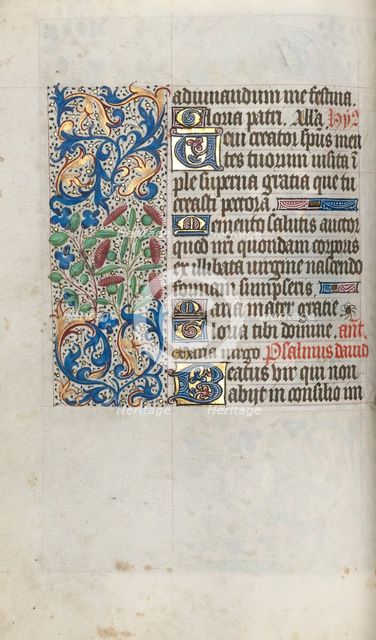 adiuuandum me festina.
Gloria patri. Alla. Hy2
Ueni creator spus men
tes tuorum uisita ī
ple superna gratia que tu
creasti pectora
Memento salutis auctor
quod nr̄i quondam corporis
ex illibata uirgine nascendo
formam sumpseris
Maria mater gracie
Gloria tibi domine. ant.
Exaīa uirgo. Psalmus dauid
Beatus uir qui non
abijt in consilio im
Heritage Heritage